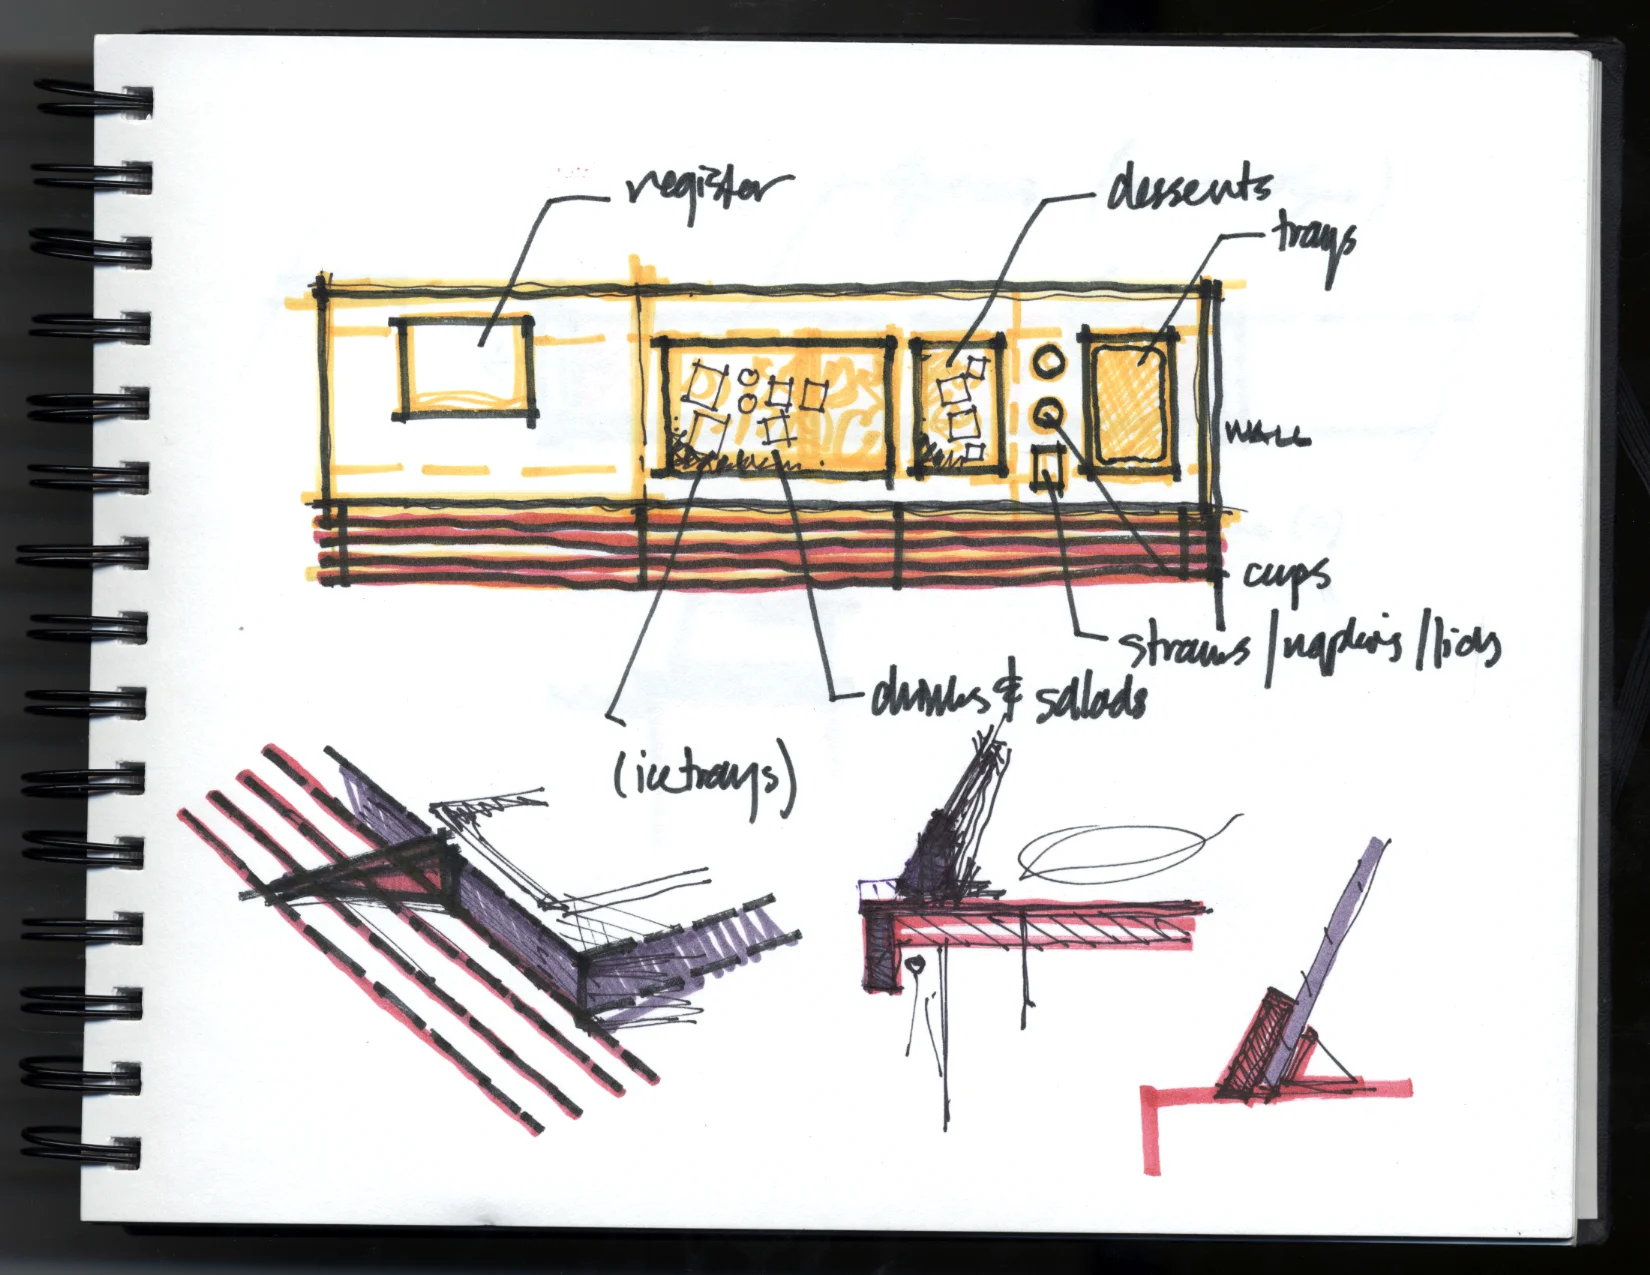 register
desserts
trays
WALL
cups
straws/napkins/lids
drinks & salads
(ice trays)